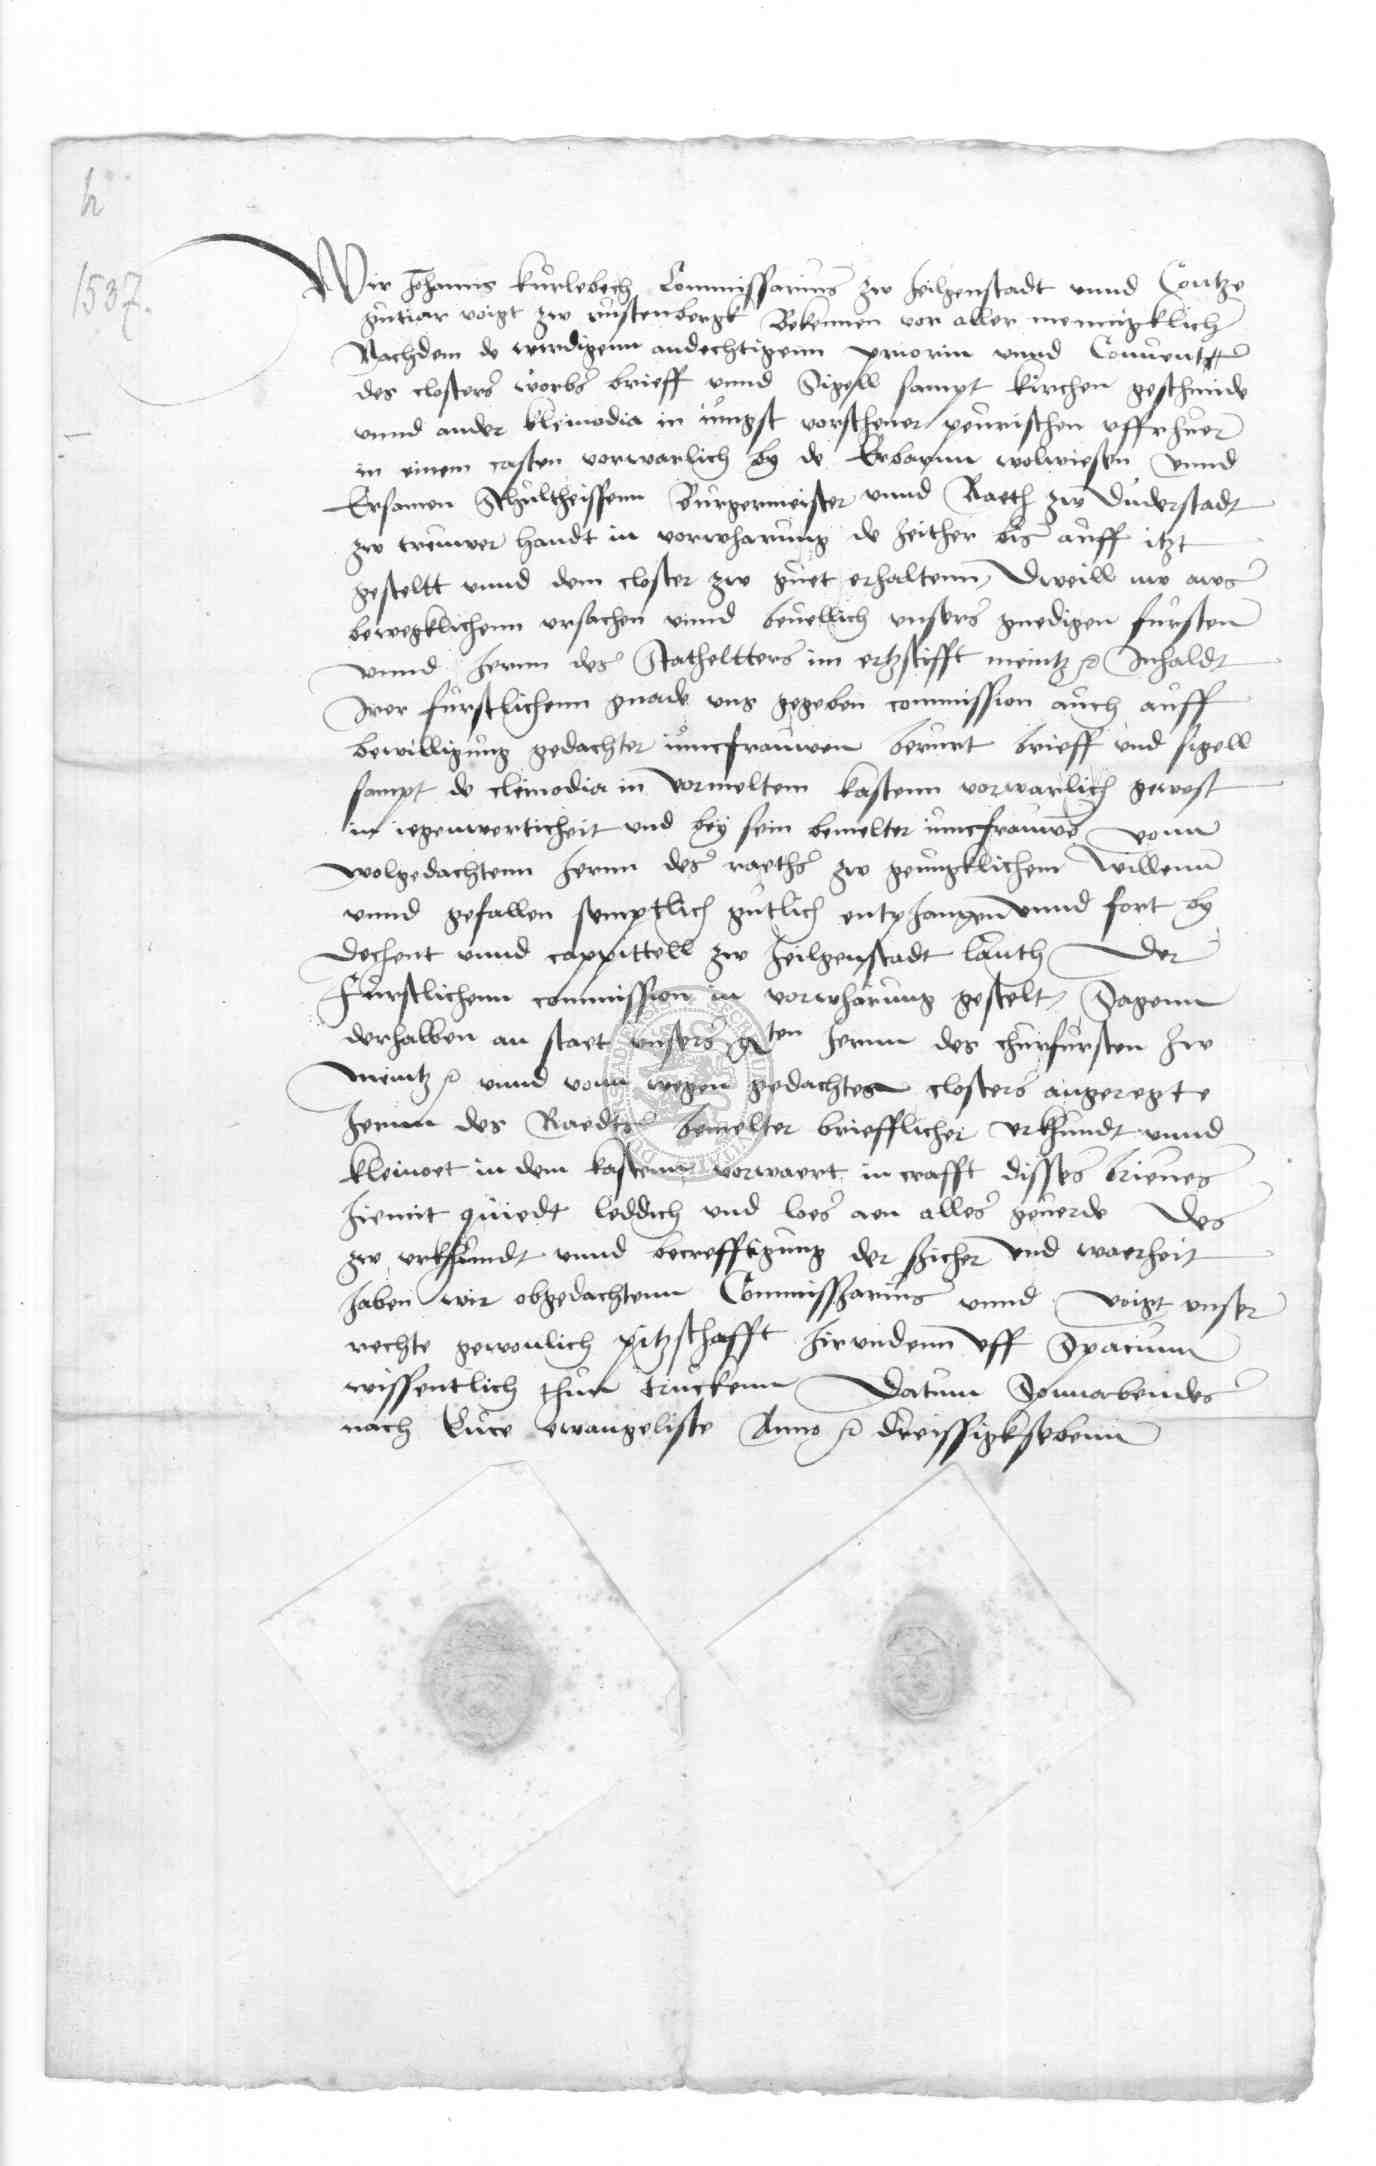 h
1537.
Wir Johannes kurlebech Commissarius zw heilgenstadt vnnd Contze
gutiar voigt zw rustenbergk Bekennen vor aller mennigklich
Nachdem de wirdigenn andechtigenn priorin vnnd Conuent
des closters worbs brieff vnnd Sigell sampt kirchen geschmide
vnnd ander kleinodia in iungst vorschener peurischen vffrhuer
in einem casten vorwarlich by de Erbarnn wolwiesen vnnd
Ersamen Schultheissenn Burgermeister vnnd Raeth zw Duderstadt
zw treuwer handt in vorwharung de zeither bis auff itzt
gesteltt vnnd dem closter zw guet erhaltenn, Dweill nw aws
bewegklichenn vrsachen vnnd beuellich vnsers gnedigen fursten
vnnd hernn des Stathelters im ertzstifft meintz Inhaldt
Irer furstlichenn gnade vns gegeben commission auch auff
bewilligung gedachter iuncfrauwen berurt brieff vnd sigell
sampt de cleinodia in vormeltem kastenn vorwarlich gewest
in iegenwerticheit vnd bey sein bemelter iuncfrauwe vonn
wolgedachtenn hernn des raeths zw genugklichem willenn
vnnd gefallen semptlich gutlich entphangen vnnd fort by
Dechent vnnd cappittell zw heilgenstadt lauth Der
Furstlichenn commission in vorwharung gestelt, Sagenn
derhalben an staet vnsers g ten hernn des churfursten zw
Meintz vnnd vonn wegen gedachtes closters angeregte
hernn des Raedts bemelter briefflicher vrkhundt vnnd
kleinoet in dem kastenn vorwaert in crafft disses brieues
hiemit quiedt leddich vnd loes aen alles geuerde Des
zw vrkhundt vnnd becrefftigung der sicher vnd waerheit
haben wir obgedachtenn Commissarius vnnd Voigt vnser
rechte gewonlich pitzschafft hir vndenn vff Spacium
wissentlich thun truckenn Datum Sonnabendes
nach Luce ewangeliste Anno dreissigksebenn